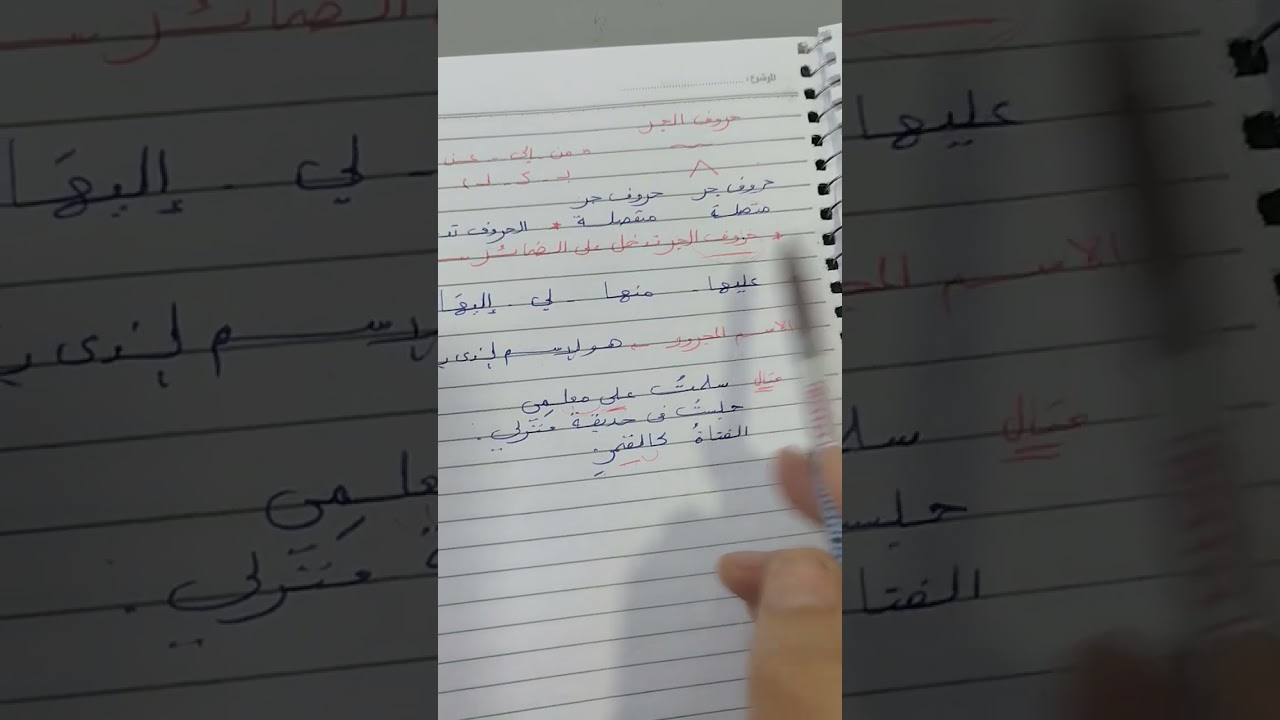 الموضوع:
حروف الجر
* من - إلى - عن
بـ - كـ - لـ
حروف جر حروف جر
متصلة منفصلة * الحروف
* حروف الجر تدخل على الضمائر
عليها - منها - لي - إليهَا
الاسم المجرور هو لاسم لذى
مثال سلمتُ على معلمِي
جلستُ فى حديقة مَنَزلي.
الفتاةُ كالقمرِ.